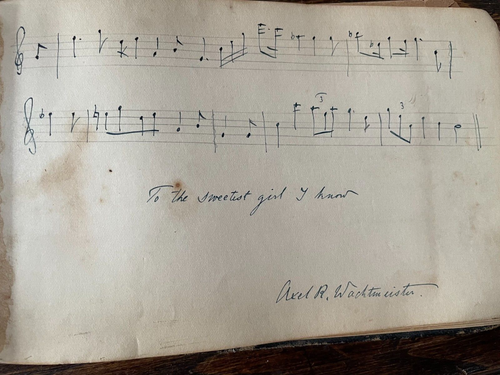 3
3
To the sweetest girl I know
Axel R. Wachtmeister.